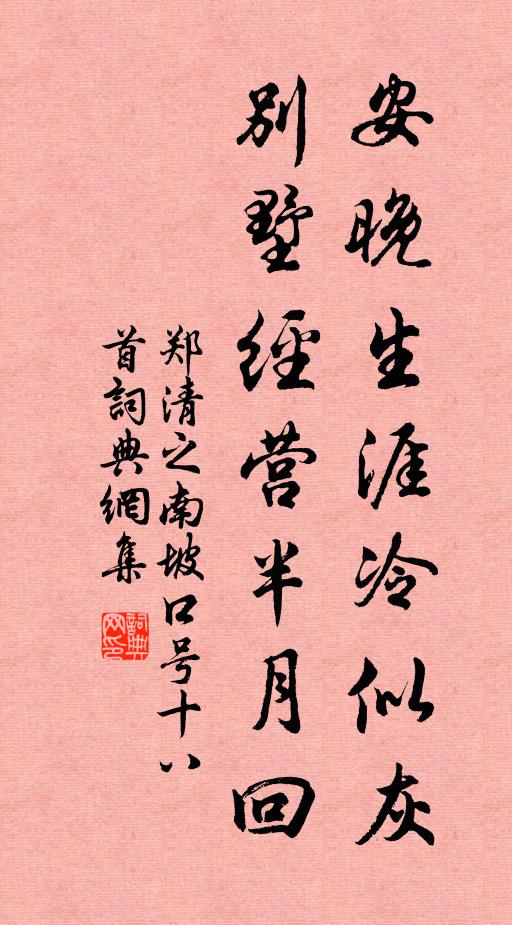 安晚生涯冷似灰
别墅經营半月回
郑清之南坡口号十八
首詞典網集
詞典网印